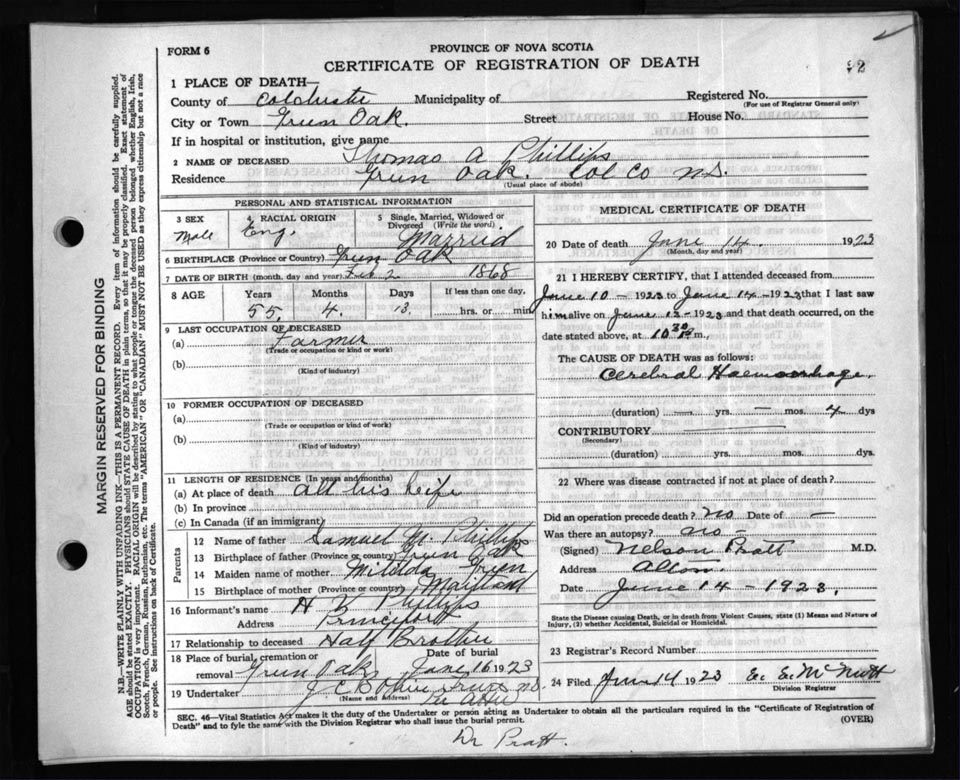 FORM 6
PROVINCE OF NOVA SCOTIA
CERTIFICATE OF REGISTRATION OF DEATH
1 PLACE OF DEATH—
County of Colchester Municipality of Registered No.
(For use of Registrar General only)
City or Town Green Oak. Street House No.
If in hospital or institution, give name
2 NAME OF DECEASED Thomas A Phillips
Residence Green Oak. Col Co N.S.
(Usual place of abode)
PERSONAL AND STATISTICAL INFORMATION
3 SEX Male
4 RACIAL ORIGIN Eng.
5 Single, Married, Widowed or Divorced (Write the word) Married
6 BIRTHPLACE (Province or Country) Green Oak
7 DATE OF BIRTH (month, day and year) Feb 2 1868
8 AGE Years Months Days If less than one day,
55. 4. 13. hrs. or min
9 LAST OCCUPATION OF DECEASED
(a) Farmer
(Trade or occupation or kind or work)
(b)
(Kind of industry)
10 FORMER OCCUPATION OF DECEASED
(a)
(Trade or occupation or kind or work)
(b)
(Kind of industry)
11 LENGTH OF RESIDENCE (In years and months)
(a) At place of death all his life
(b) In province
(c) In Canada (if an immigrant)
Parents
12 Name of father Samuel M. Phillips
13 Birthplace of father (Province or country) Green Oak
14 Maiden name of mother Matilda Green
15 Birthplace of mother (Province or country) Maitland
16 Informant's name H Phillips
Address Princeport
17 Relationship to deceased Half Brother
18 Place of burial, cremation or removal Green Oak Date of burial June 16 1923
19 Undertaker
(Name and address)
MEDICAL CERTIFICATE OF DEATH
20 Date of death June 14. 1923
(Month, day and year)
21 I HEREBY CERTIFY, that I attended deceased from
June 10 - 1923 to June 14 - 1923 that I last saw
him alive on June 12 - 1923 and that death occurred, on
date stated above, at 10 30 P m.
The CAUSE OF DEATH was as follows:
Cerebral Haemorrhage.
(duration) — yrs. — mos. 4 dys
CONTRIBUTORY
(Secondary)
(duration) yrs. mos. dys.
22 Where was disease contracted if not at place of death?
Did an operation precede death? no Date of —
Was there an autopsy? no -
(Signed) Nelson Pratt M.D.
Address
Date June 14 - 1923.
State the Disease causing Death, or in death from Violent Causes, state (1) Means and Nature of
Injury, (2) whether Accidental, Suicidal or Homicidal.
23 Registrar's Record Number
24 Filed June 14 1923 E. E. McNutt
Division Registrar
SEC. 46—Vital Statistics Act makes it the duty of the Undertaker or person acting as Undertaker to obtain all the particulars required in the "Certificate of Registration of
Death" and to fyle the same with the Division Registrar who shall issue the burial permit.
(OVER)
Dr Pratt.
MARGIN RESERVED FOR BINDING
N.B.—WRITE PLAINLY WITH UNFADING INK—THIS IS A PERMANENT RECORD. Every item of information should be carefully supplied.
AGE should be stated EXACTLY. PHYSICIANS should STATE CAUSE OF DEATH in plain terms, so that it may be properly classified. Exact statement of
OCCUPATION is very important. RACIAL ORIGIN will be described by stating to what people or tongue the deceased person belonged whether English, Irish,
Scotch, French, German, Russian, Ruthenian, etc. The terms "AMERICAN" or "CANADIAN" MUST NOT BE USED as they express citizenship but not a race
or people. See instructions on back of Certificate.